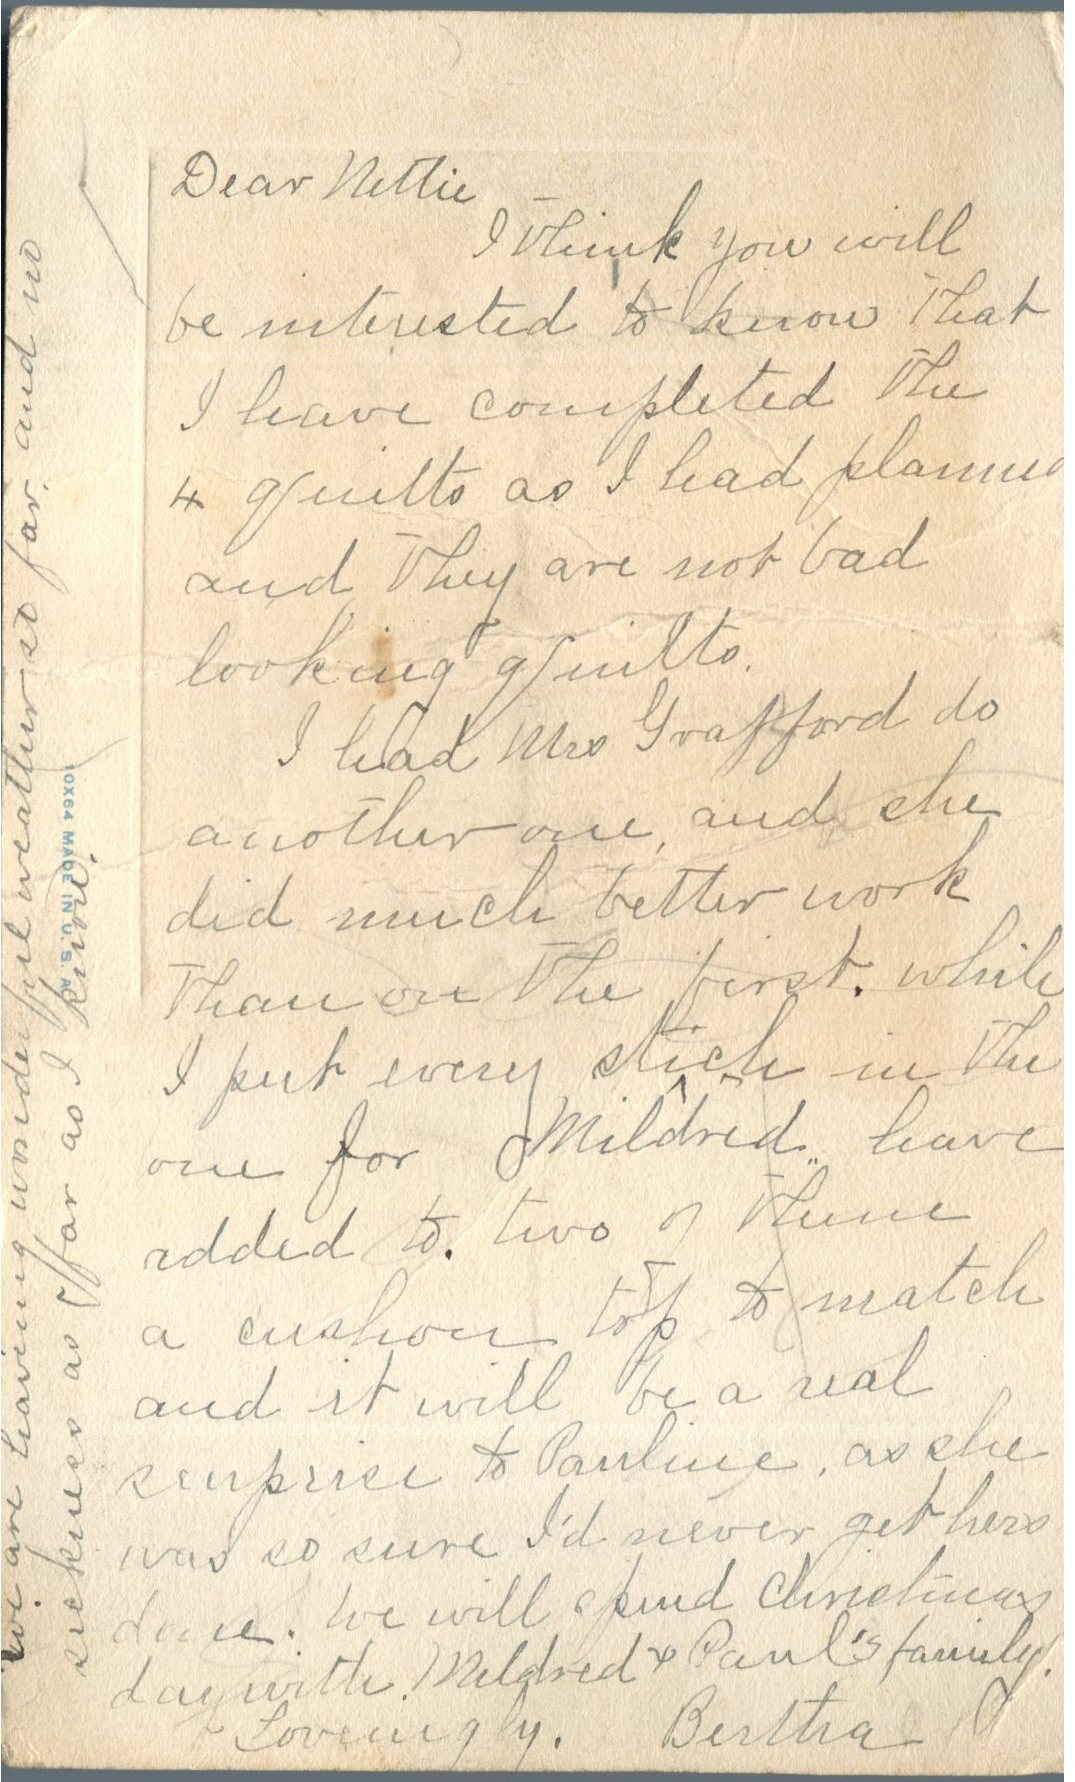 Dear Nettie
I think you will
be interested to know that
I have completed the
4 quilts as I had planned
and they are not bad
looking quilts.
I had Mrs Grafford do
another one, and she
did much better work
than on the first. while
I put every stich in the
one for Mildred.. have
added to. two of
a cushon top to match
and it will be a real
surprise to Pauline, as she
was so sure I'd never get hers
done. We will spend Christmas
day with. Mildred & Paul's family.
Lovingly. Bertha
we are having wonderful weather so far. and no
sickness as far as I know.
10X64 MADE IN U.S.A.